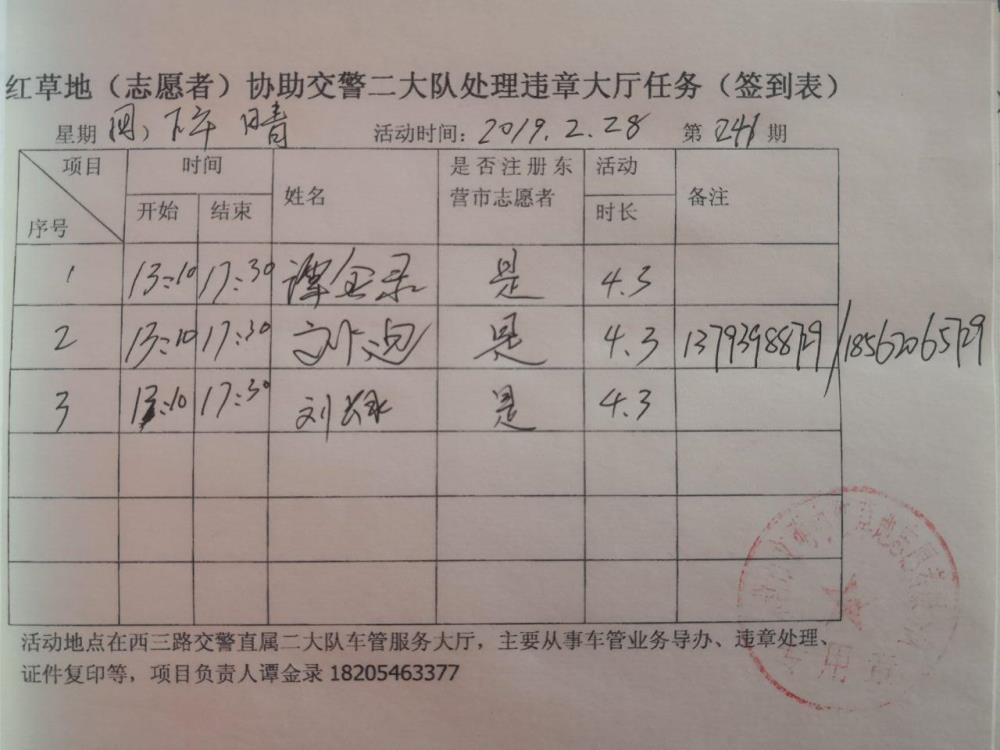 红草地（志愿者）协助交警二大队处理违章大厅任务（签到表）
星期 四） 下午 晴 活动时间：2019.2.28 第 241 期
项目 时间 姓名 是否注册东营市志愿者 活动时长 备注
序号 开始 结束
1 13:10 17:30 谭金录 是 4.3
2 13:10 17:30 是 4.3 13793988729/18562065729
3 13:10 17:30 刘 是 4.3
活动地点在西三路交警直属二大队车管服务大厅，主要从事车管业务导办、违章处理、
证件复印等，项目负责人谭金录 18205463377
专用章